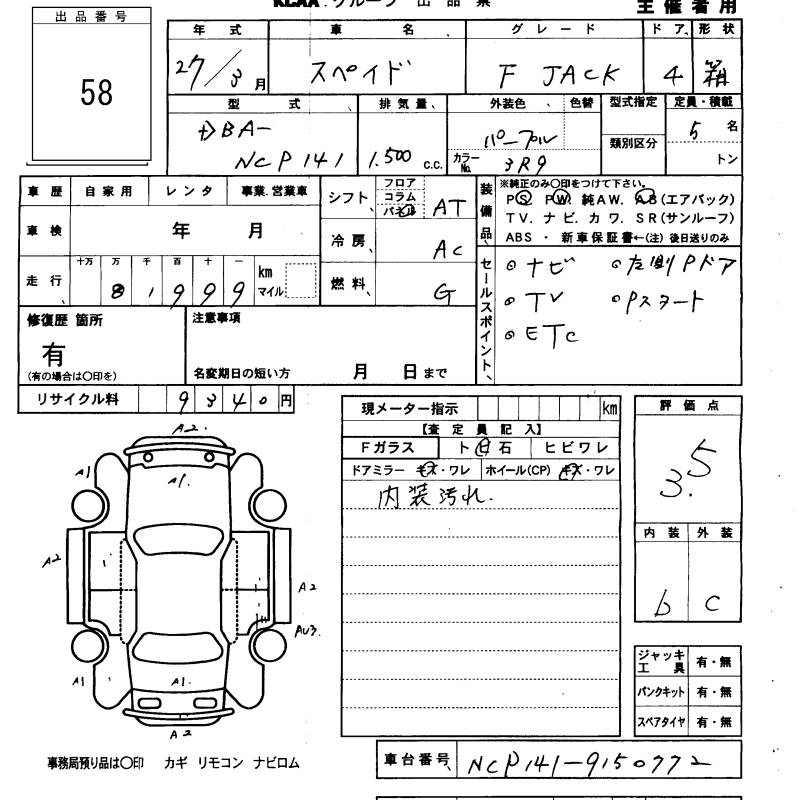 KCAA.グループ 出 品 票
主 催 者 用
出 品 番 号
58
年 式 車 名 グ レ ー ド ド ア 形 状
27/3月 スペイド F JACK 4 箱
型 式 排 気 量 外装色 色替 型式指定 定員・積載
DBA- パープル 5 名
NCP141 1.500 c.c. カラーNo. 3R9 類別区分 トン
車 歴 自 家 用 レ ン タ 事業.営業車
シフト フロア コラム パネル AT
車 検 年 月
冷 房 Ac
走 行 十万 万 千 百 十 一
8 1 9 9 9 km マイル
燃 料 G
装備品
※純正のみ〇印をつけて下さい。
PS PW. 純AW. AB(エアバック)
TV. ナ ビ. カ ワ. SR(サンルーフ)
ABS ・ 新車保証書←(注) 後日送りのみ
セールスポイント
ナビ 左側Pドア
TV Pスタート
ETC
修復歴 箇所
有
(有の場合は〇印を)
注意事項
名変期日の短い方 月 日まで
リサイクル料 9 3 4 0 円
現メーター指示 km
【査 定 員 記 入】
Fガラス ト 日 石 ヒビワレ
ドアミラー キズ・ワレ ホイール(CP) キズ・ワレ
内装汚れ.
評 価 点
3.5
内 装 外 装
b c
A2.
A1 A1. A1
A2 A2
AU3
A1 A1. A1
A2
ジャッキ工具 有・無
パンクキット 有・無
スペアタイヤ 有・無
事務局預り品は〇印 カギ リモコン ナビロム
車台番号 NCP141-9150772